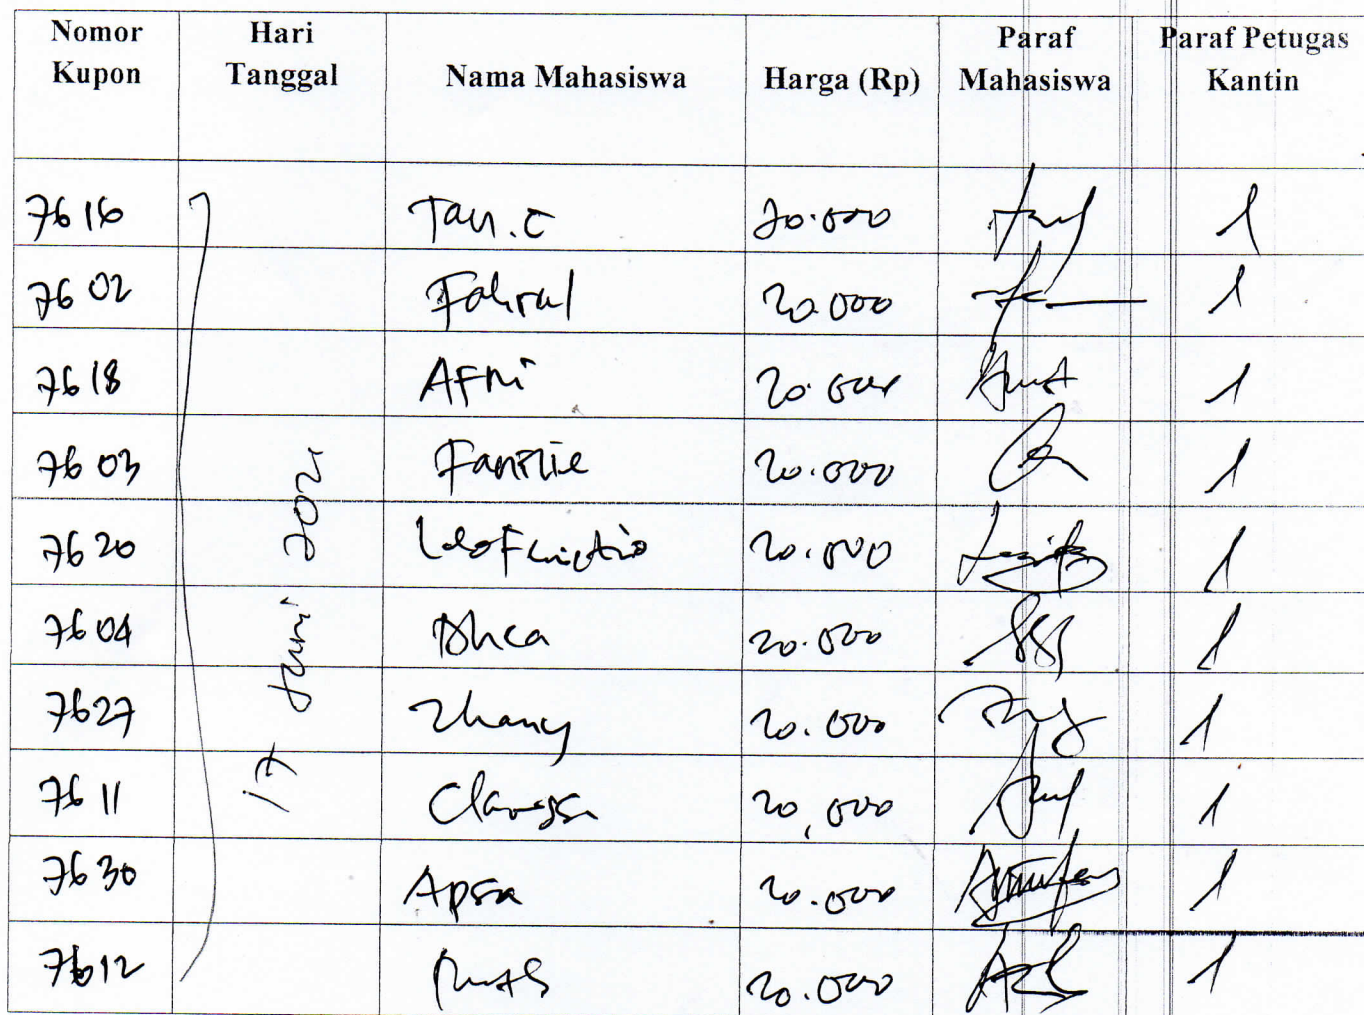 Nomor Kupon Hari Tanggal Nama Mahasiswa Harga (Rp) Paraf Mahasiswa Paraf Petugas Kantin
17 Juni 2021
7616 Tan.C 20.000
7602 Fahral 20.000
7618 AFni 20.000
7603 20.000
7620 20.000
7604 Dhea 20.000
7627 Zhany 20.000
7611 Clarissa 20,000
7630 Apsa 20.000
7612 20.000